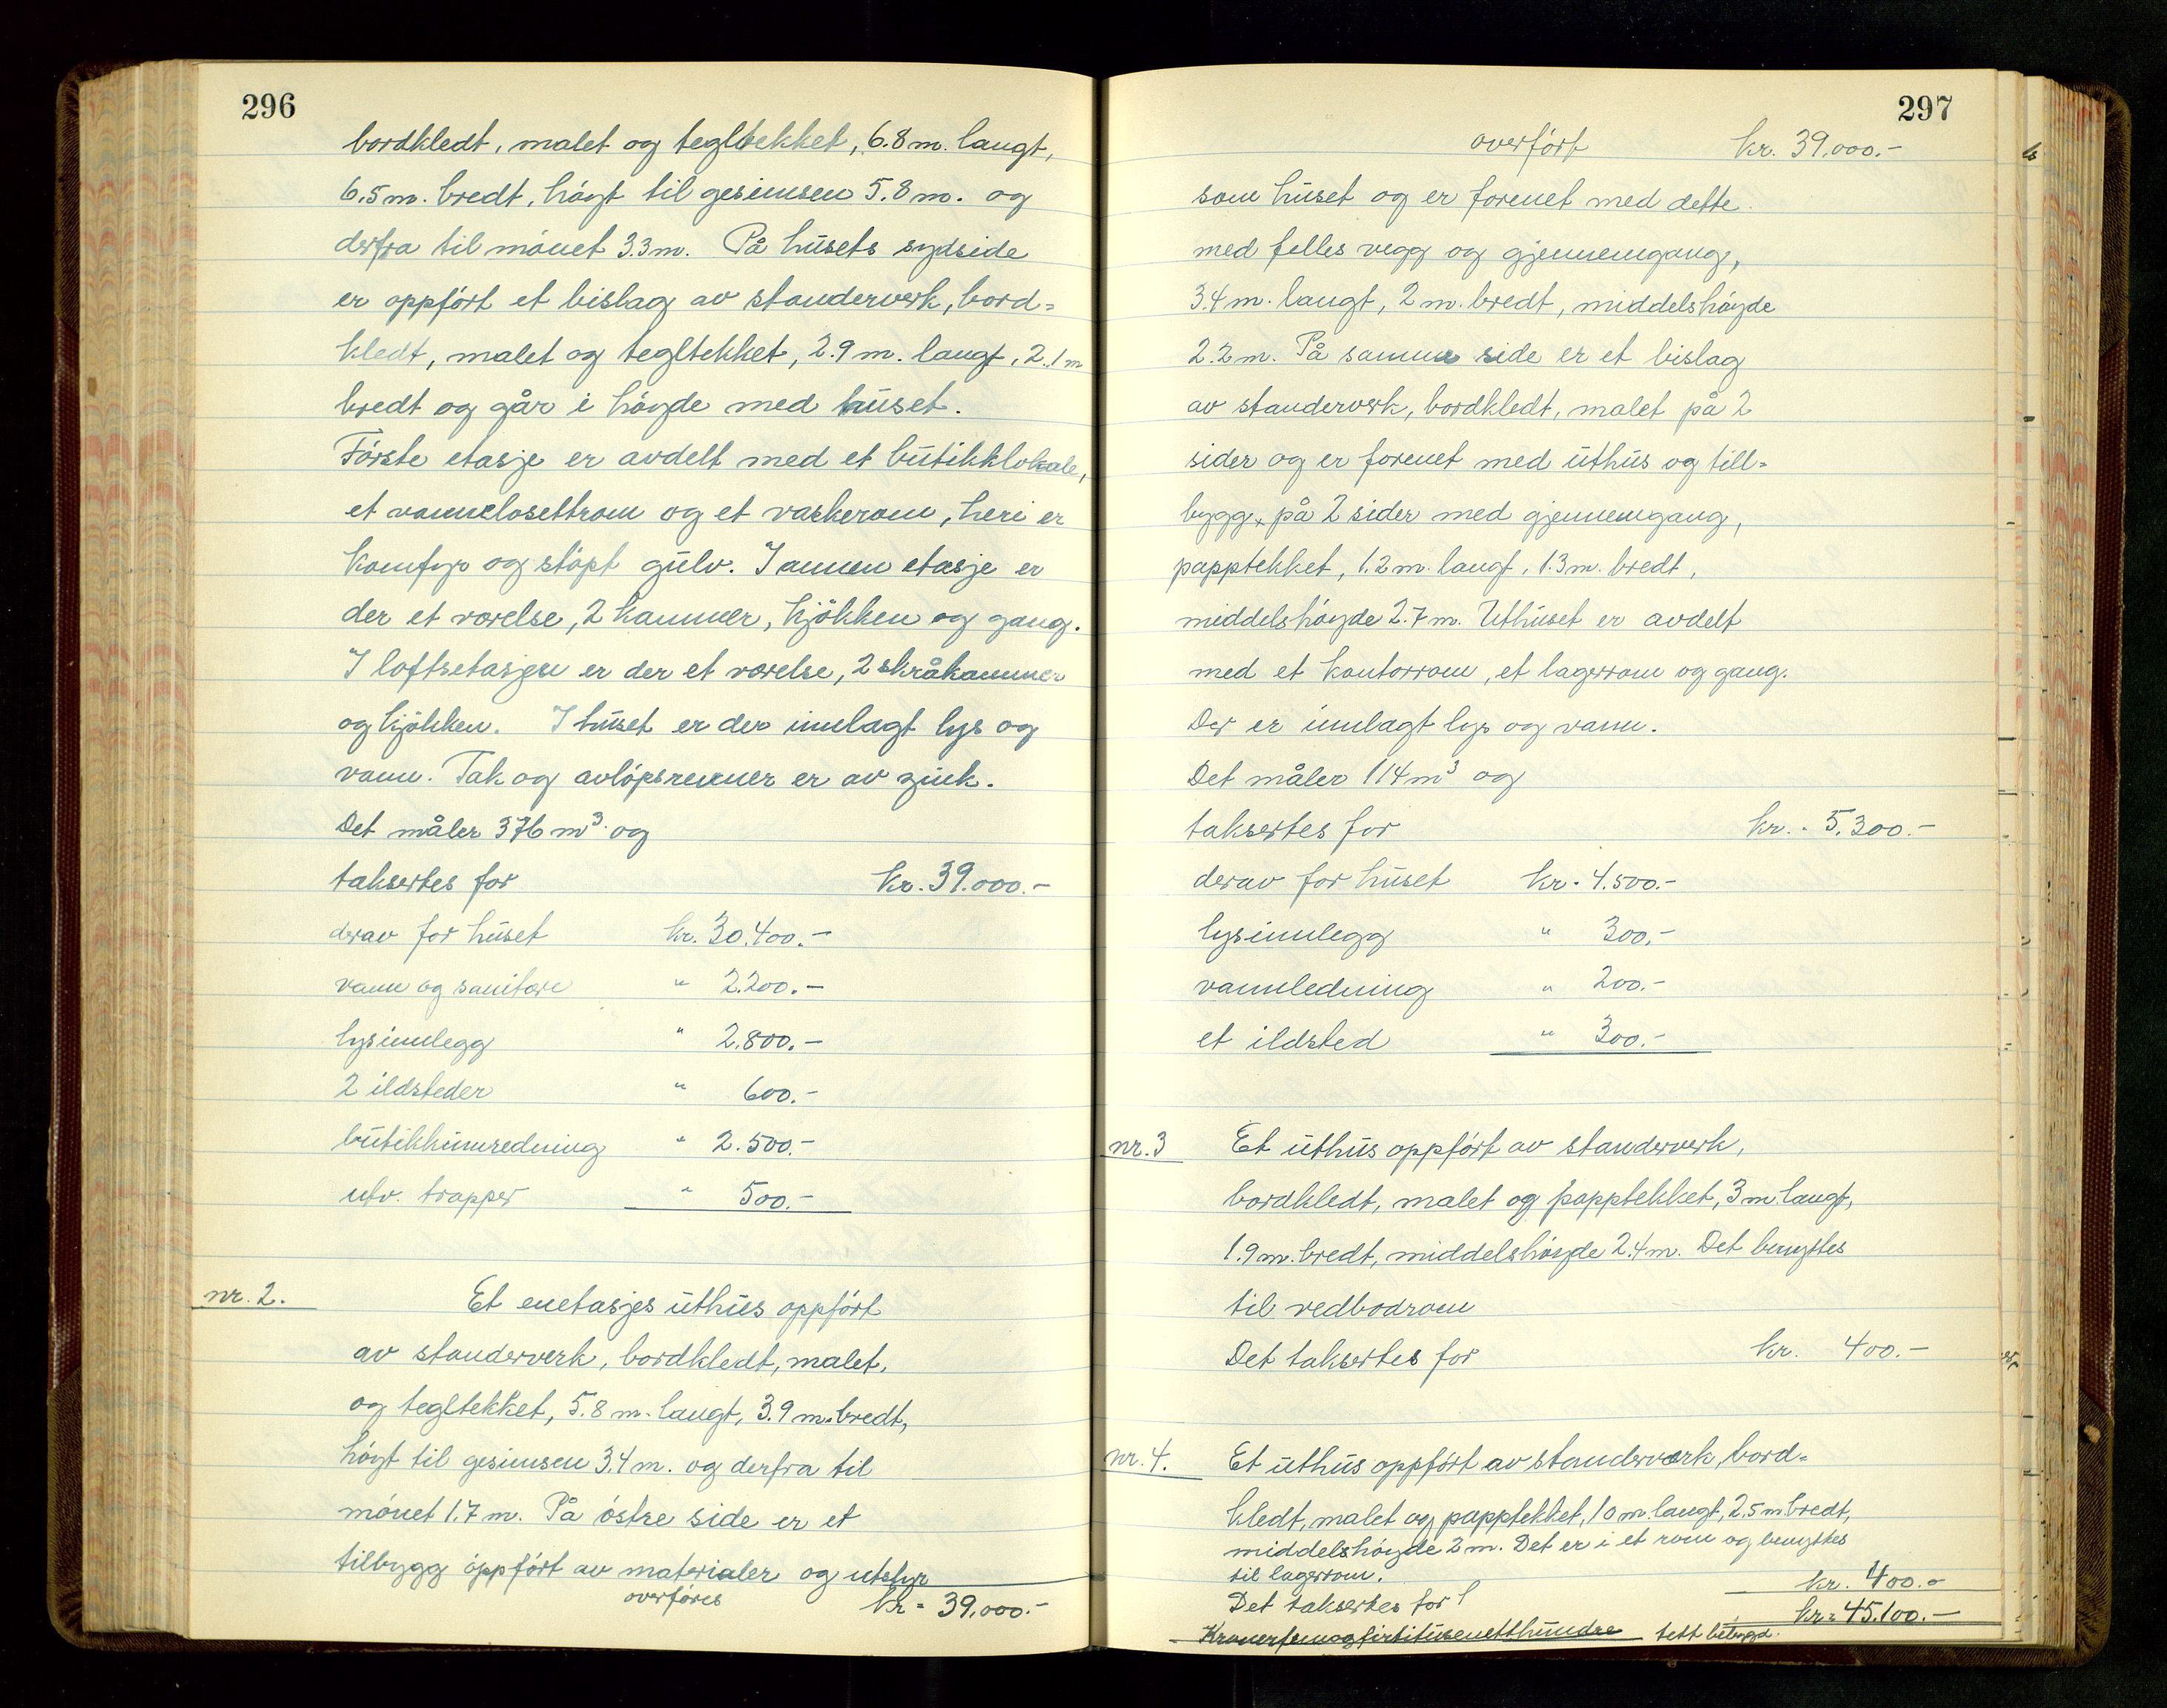 296
bordkledt, malet og tegltekket, 6.8 m. langt,
6.5 m. bredt, högt til gesimsen 5.8 m. og
derfra til mönet 3.3 m. På husets sydside
er oppfört et bislag av standerverk, bord=
kledt, malet og tegltekket, 2.9 m. langt, 2.1 m
bredt og går i höyde med huset.
Förste etasje er avdelt med et butikklokale,
et vannclosettrom og et vaskerom, heri er
komfyr og stöpt gulv. I annen etasje er
der et værelse, 2 kammer, kjökken og gang.
I loftsetasjen er der et værelse, 2 skråkammer
og kjökken. I huset er der innlagt lys og
vann. Tak og avlöpsrenner er av zink.
Det måler 376 m³ og
taksertes for kr. 39.000.-
derav for huset kr. 30.400.-
vann og sanitære " 2.200.-
lysinnlegg " 2.800.-
2 ildsteder " 600.-
butikkinnredning " 2.500.-
utv. trapper " 500.-
nr. 2. Et enetasjes uthus oppfört
av standerverk, bordkledt, malet,
og tegltekket, 5.8 m. langt, 3.9 m. bredt,
högt til gesimsen 3.4 m. og derfra til
mönet 1.7 m. På östre side er et
tilbygg oppfört av materialer og utstyr
overföres kr = 39.000.-
297
overfört kr. 39.000.-
som huset og er forenet med dette
med felles vegg og gjennemgang,
3.4 m. langt, 2 m. bredt, middelshöyde
2.2 m. På samme side er et bislag
av standerverk, bordkledt, malet på 2
sider og er forenet med uthus og till=
bygg, på 2 sider med gjennemgang,
papptekket, 1.2 m. langt, 1.3 m. bredt,
middelshöyde 2.7 m. Uthuset er avdelt
med et kontorrom, et lagerrom og gang.
Der er innlagt lys og vann.
Det måler 114 m³ og
taksertes for kr. - 5.300.-
derav for huset kr. 4.500.-
lysinnlegg " 300.-
vannledning " 200.-
et ildsted " 300.-
nr. 3 Et uthus oppfört av standerverk,
bordkledt, malet og papptekket, 3 m langt,
1.9 m. bredt, middelshöyde 2.4 m. Det benyttes
til vedbodrom
Det taksertes for kr. 400.-
nr. 4. Et uthus oppfört av standerverk, bord=
kledt, malet og papptekket, 10 m. langt, 2.5 m bredt,
middelshöyde 2 m. Det er i et rom og benyttes
til lagerrom.
Det taksertes for kr. 400.-
kr = 45.100.-
Kronerfemogfirtitusenetthundre tett bebygd.